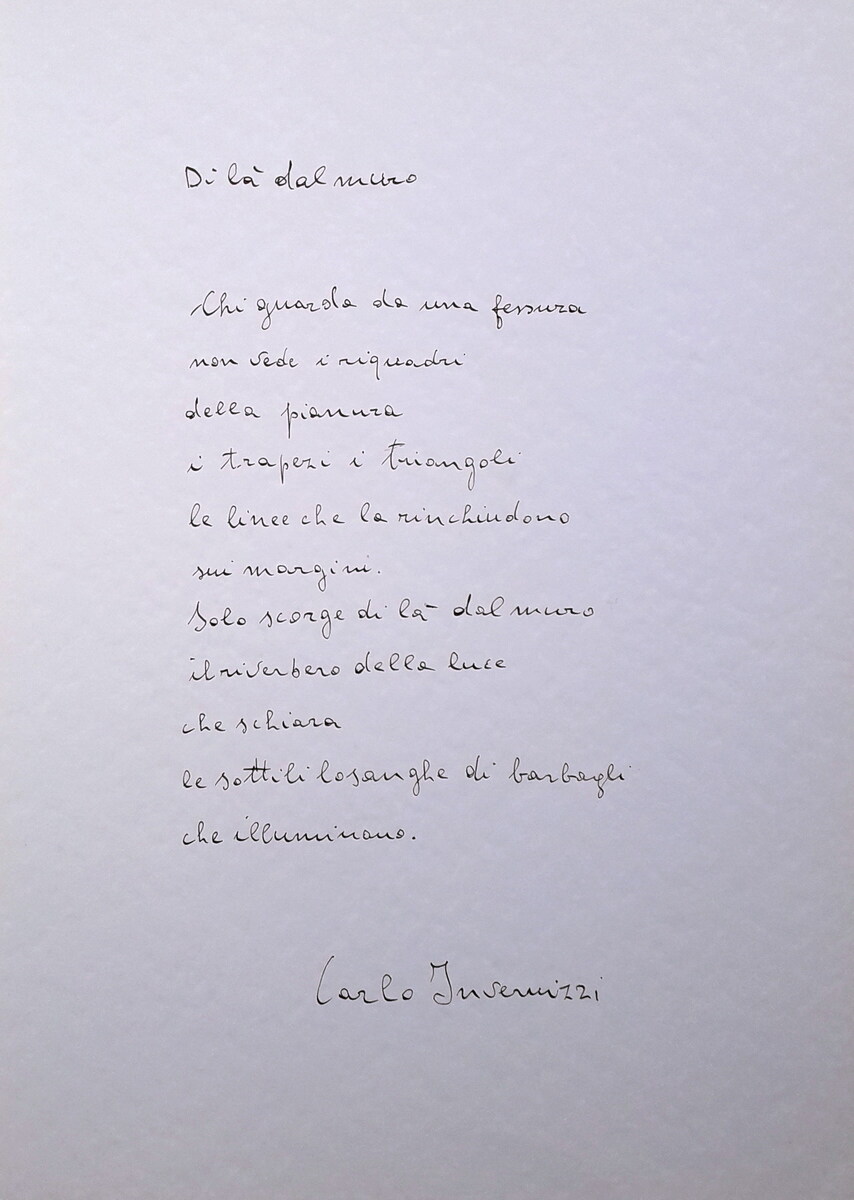 Di là dal muro
Chi guarda da una fessura
non vede i riquadri
della pianura
i trapezi i triangoli
le linee che la rinchiudono
sui margini.
Solo scorge di là dal muro
il riverbero della luce
che schiara
le sottili losanghe di barbagli
che illuminano.
Carlo Invernizzi